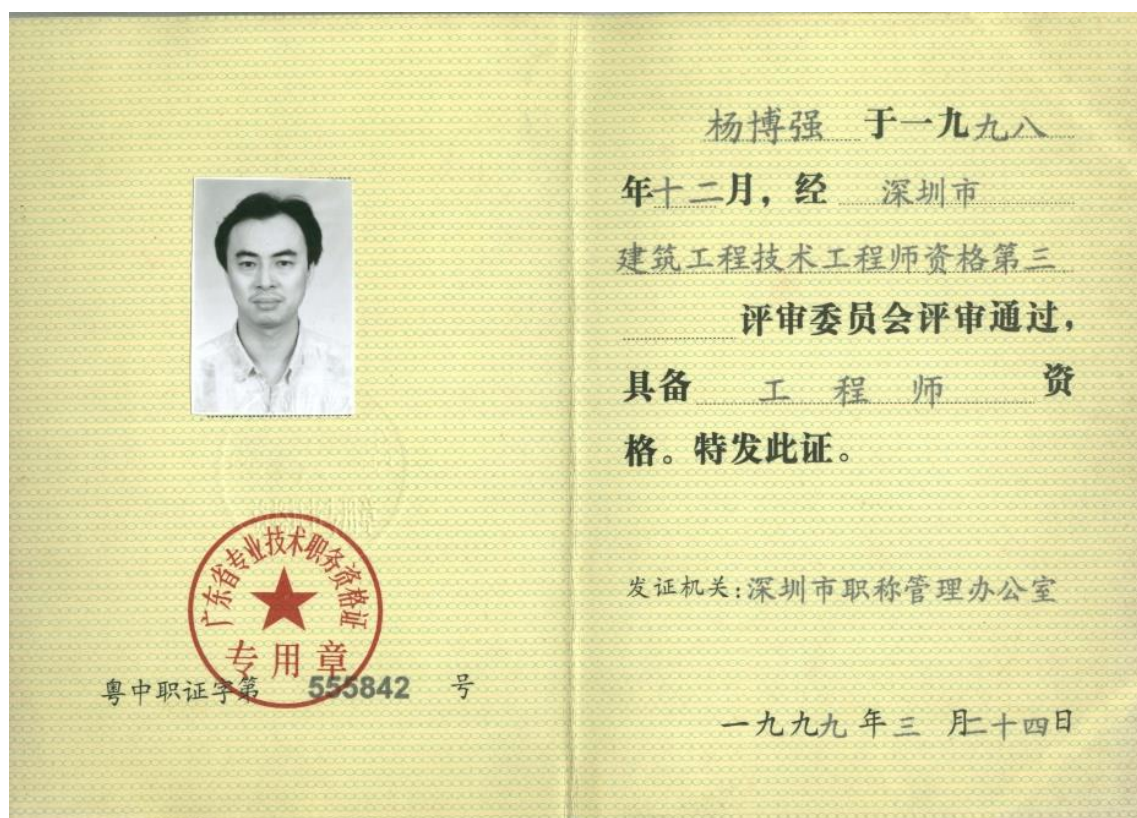 广东省专业技术职务资格证
专用章
粤中职证字第 555842 号
杨博强 于一九九八
年十二月，经 深圳市
建筑工程技术工程师资格第三
评审委员会评审通过，
具备 工程师 资
格。特发此证。
发证机关：深圳市职称管理办公室
一九九九年三月二十四日